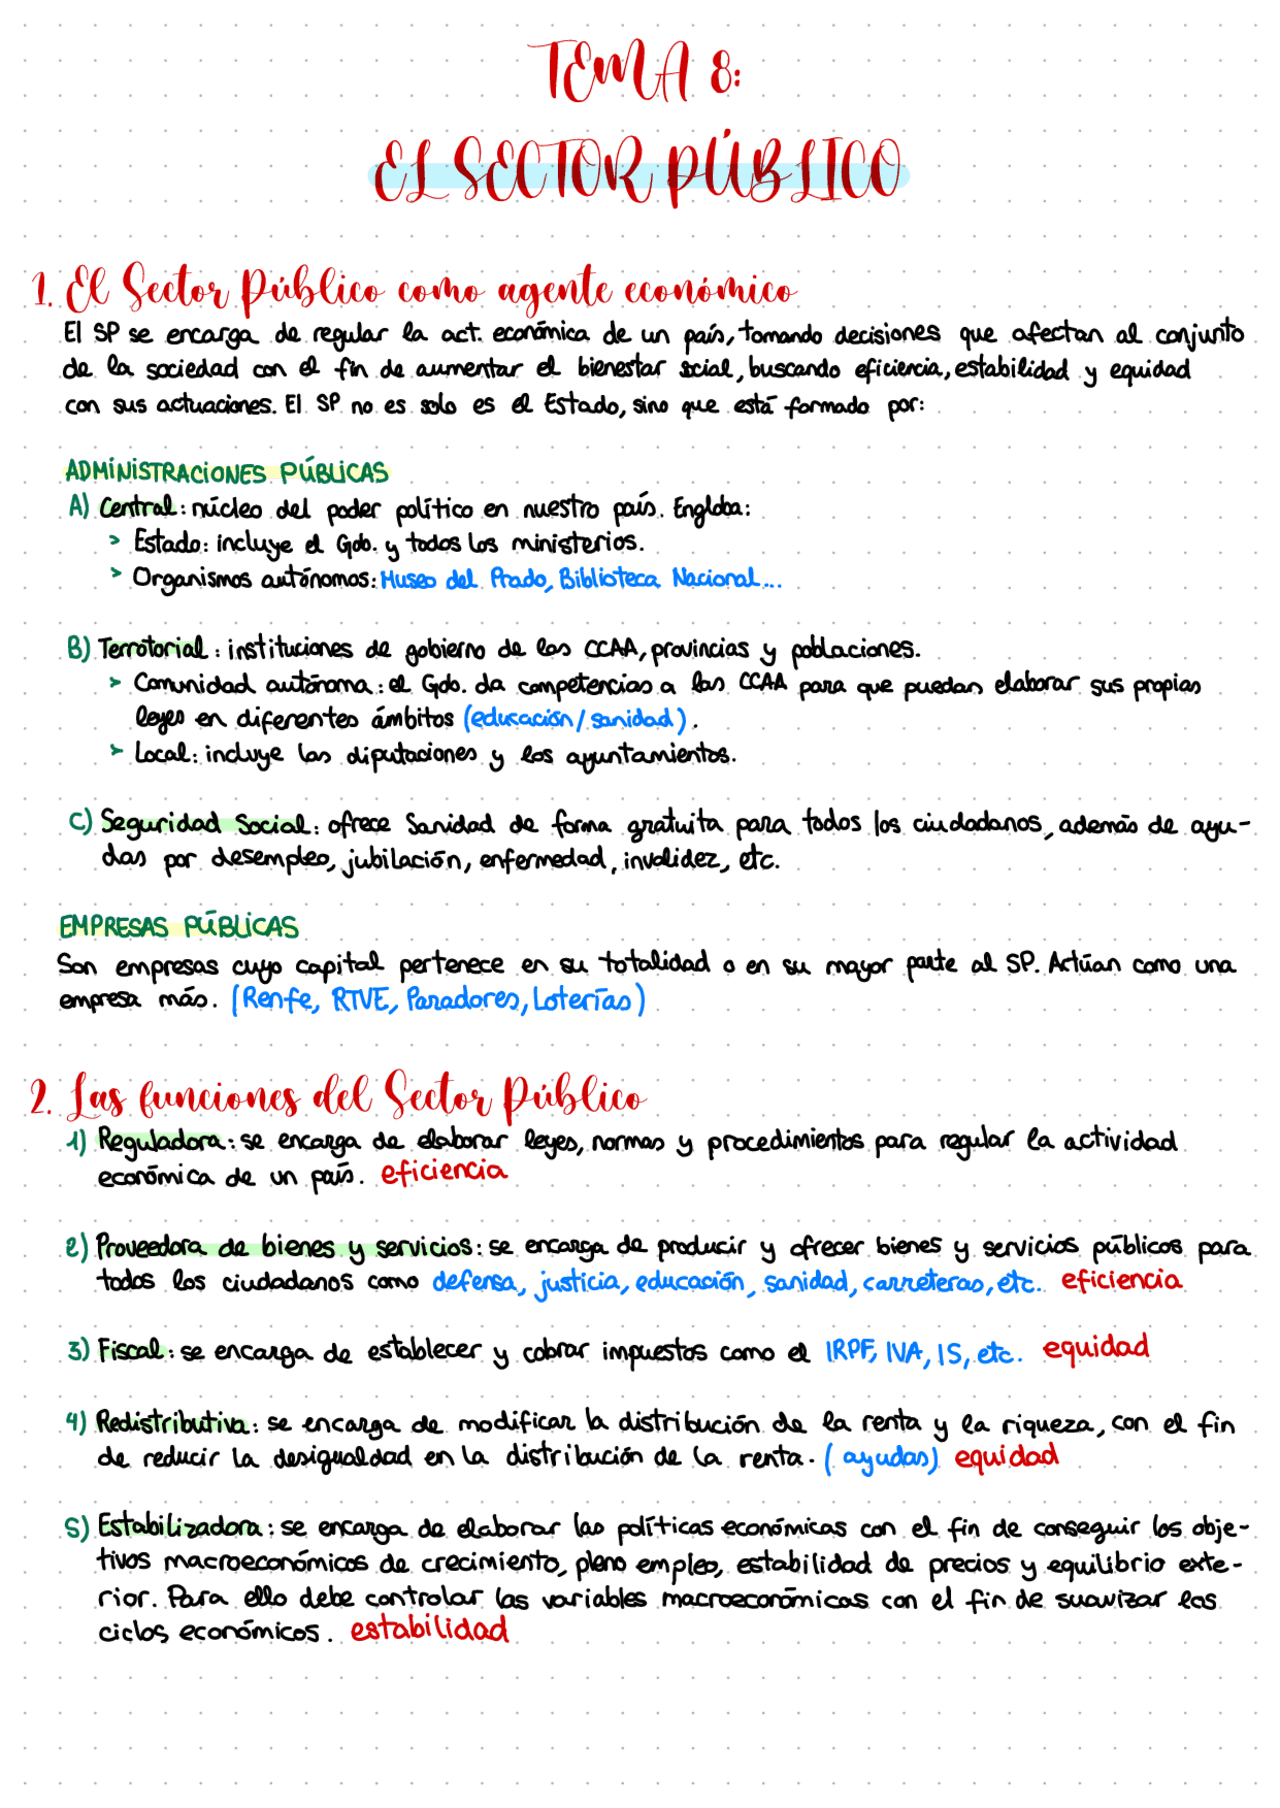 TEMA 8:
EL SECTOR PÚBLICO
1. El Sector Público como agente económico
El SP se encarga de regular la act. económica de un país, tomando decisiones que afectan al conjunto
de la sociedad con el fin de aumentar el bienestar social, buscando eficiencia, estabilidad y equidad
con sus actuaciones. El SP no es solo es el Estado, sino que está formado por:
ADMINISTRACIONES PÚBLICAS
A) Central: núcleo del poder político en nuestro país. Engloba:
> Estado: incluye el Gob. y todos los ministerios.
> Organismos autónomos: Museo del Prado, Biblioteca Nacional...
B) Terrotorial: instituciones de gobierno de las CCAA, provincias y poblaciones.
> Comunidad autónoma: el Gob. da competencias a las CCAA para que puedan elaborar sus propias
leyes en diferentes ámbitos (educación/sanidad).
> Local: incluye las diputaciones y los ayuntamientos.
C) Seguridad Social: ofrece Sanidad de forma gratuita para todos los ciudadanos, además de ayu-
das por desempleo, jubilación, enfermedad, invalidez, etc.
EMPRESAS PÚBLICAS
Son empresas cuyo capital pertenece en su totalidad o en su mayor parte al SP. Actúan como una
empresa más. (Renfe, RTVE, Paradores, Loterías)
2. Las funciones del Sector Público
1) Reguladora: se encarga de elaborar leyes, normas y procedimientos para regular la actividad
económica de un país. eficiencia
2) Proveedora de bienes y servicios: se encarga de producir y ofrecer bienes y servicios públicos para
todos los ciudadanos como defensa, justicia, educación, sanidad, carreteras, etc. eficiencia
3) Fiscal: se encarga de establecer y cobrar impuestos como el IRPF, IVA, IS, etc. equidad
4) Redistributiva: se encarga de modificar la distribución de la renta y la riqueza, con el fin
de reducir la desigualdad en la distribución de la renta. (ayudas) equidad
5) Estabilizadora: se encarga de elaborar las políticas económicas con el fin de conseguir los obje-
tivos macroeconómicos de crecimiento, pleno empleo, estabilidad de precios y equilibrio exte-
rior. Para ello debe controlar las variables macroeconómicas con el fin de suavizar los
ciclos económicos. estabilidad